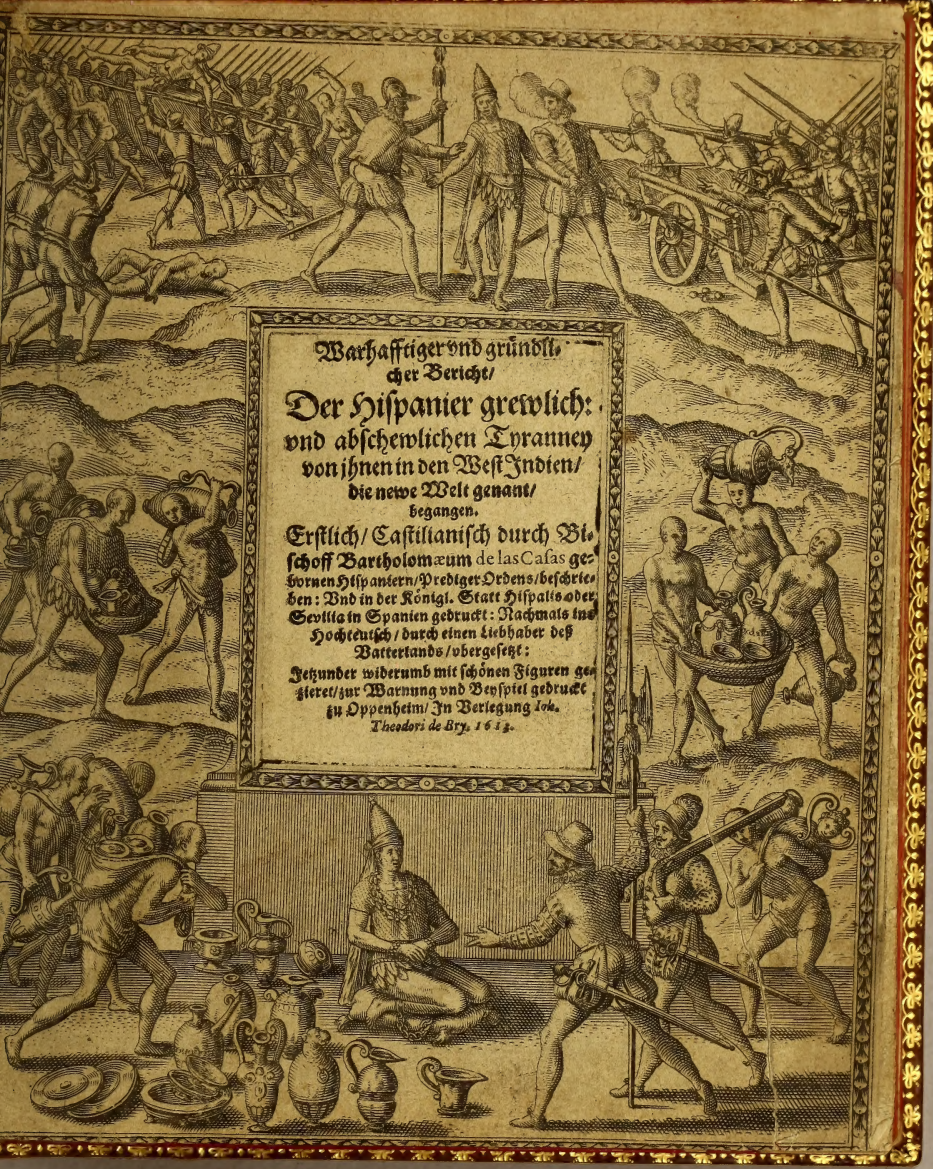 Warhafftiger vnd gründli-
cher Bericht/
Der Hispanier grewlich:
vnd abschewlichen Tyranney
von jhnen in den West Indien/
die newe Welt genant/
begangen.
Erstlich/ Castilianisch durch Bi-
schoff Bartholomæum de las Casas ge-
bornen Hispaniern/ Prediger Ordens/ beschrie-
ben: Vnd in der Königl. Statt Hispalis oder
Sevilia in Spanien gedruckt: Nachmals ins
Hochteutsch/ durch einen Liebhaber deß
Vatterlands/ vbergesetzt:
Jetzunder widerumb mit schönen Figuren ge-
zieret/ zur Warnung vnd Beyspiel gedruckt
zu Oppenheim/ In Verlegung Ioh.
Theodori de Bry. 1613.